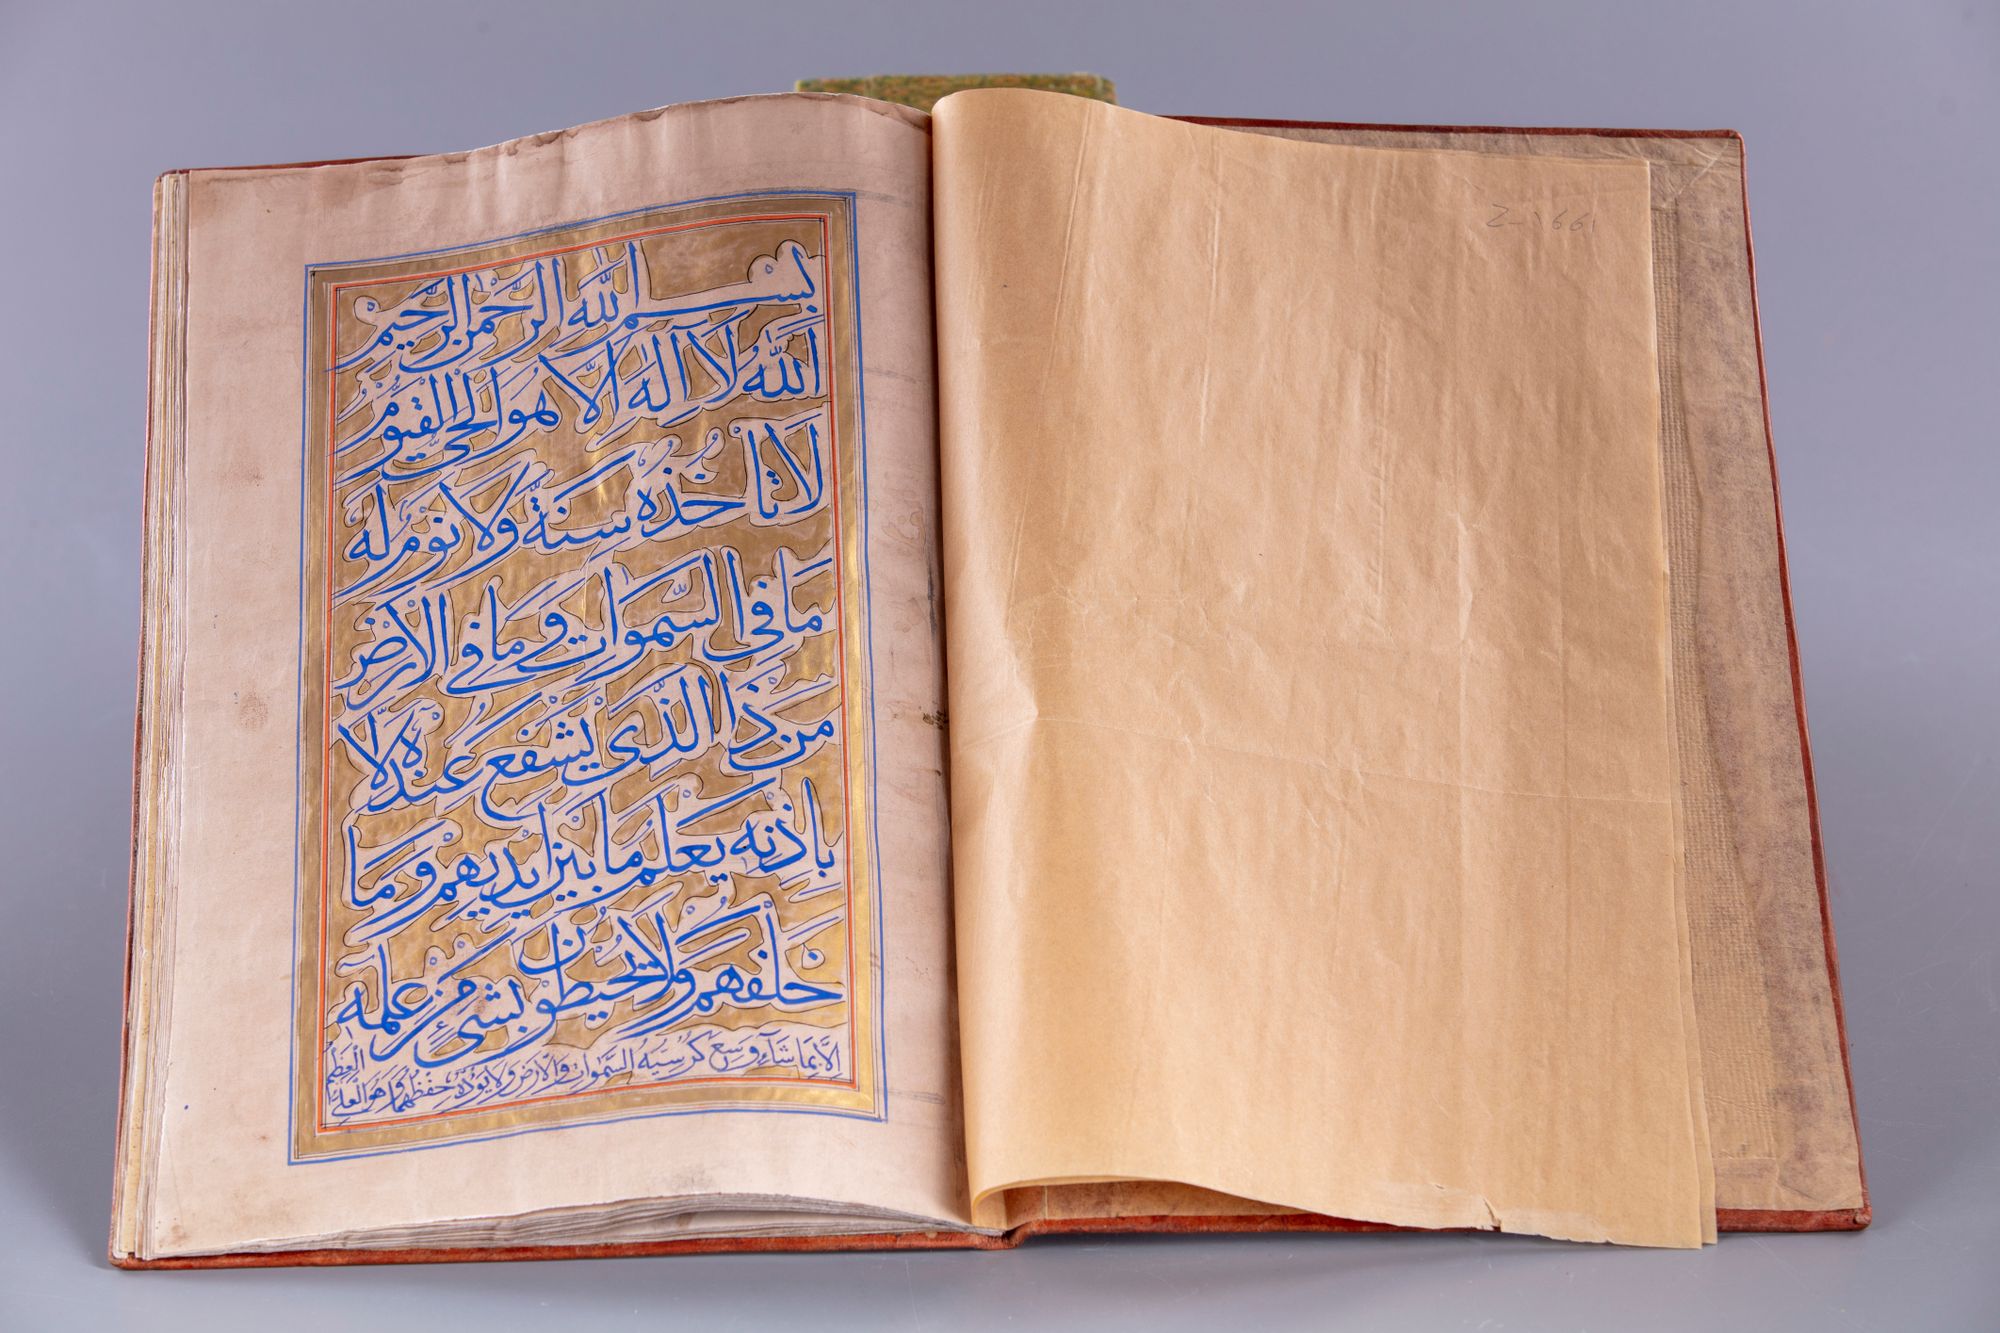 بِسْمِ اللّٰهِ الرَّحْمٰنِ الرَّحِيْمِ
اَللّٰهُ لَا اِلٰهَ اِلَّا هُوَ الْحَىُّ الْقَيُّوْمُ
لَا تَاْخُذُهُ سِنَةٌ وَلَا نَوْمٌ لَهُ
مَا فِى السَّمٰوَاتِ وَمَا فِى الْاَرْضِ
مَنْ ذَا الَّذِى يَشْفَعُ عِنْدَهُ اِلَّا
بِاِذْنِهٖ يَعْلَمُ مَا بَيْنَ اَيْدِيْهِمْ وَمَا
خَلْفَهُمْ وَلَا يُحِيْطُوْنَ بِشَىْءٍ مِنْ عِلْمِهٖ
اِلَّا بِمَا شَآءَ وَسِعَ كُرْسِيُّهُ السَّمٰوَاتِ وَالْاَرْضَ وَلَا يَؤُدُهُ حِفْظُهُمَا وَهُوَ الْعَلِىُّ
الْعَظِيْمُ
Z-1661